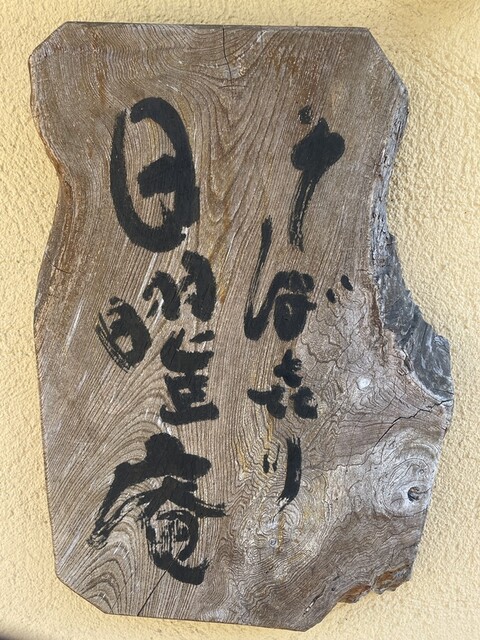 そば㐂り
日曜庵